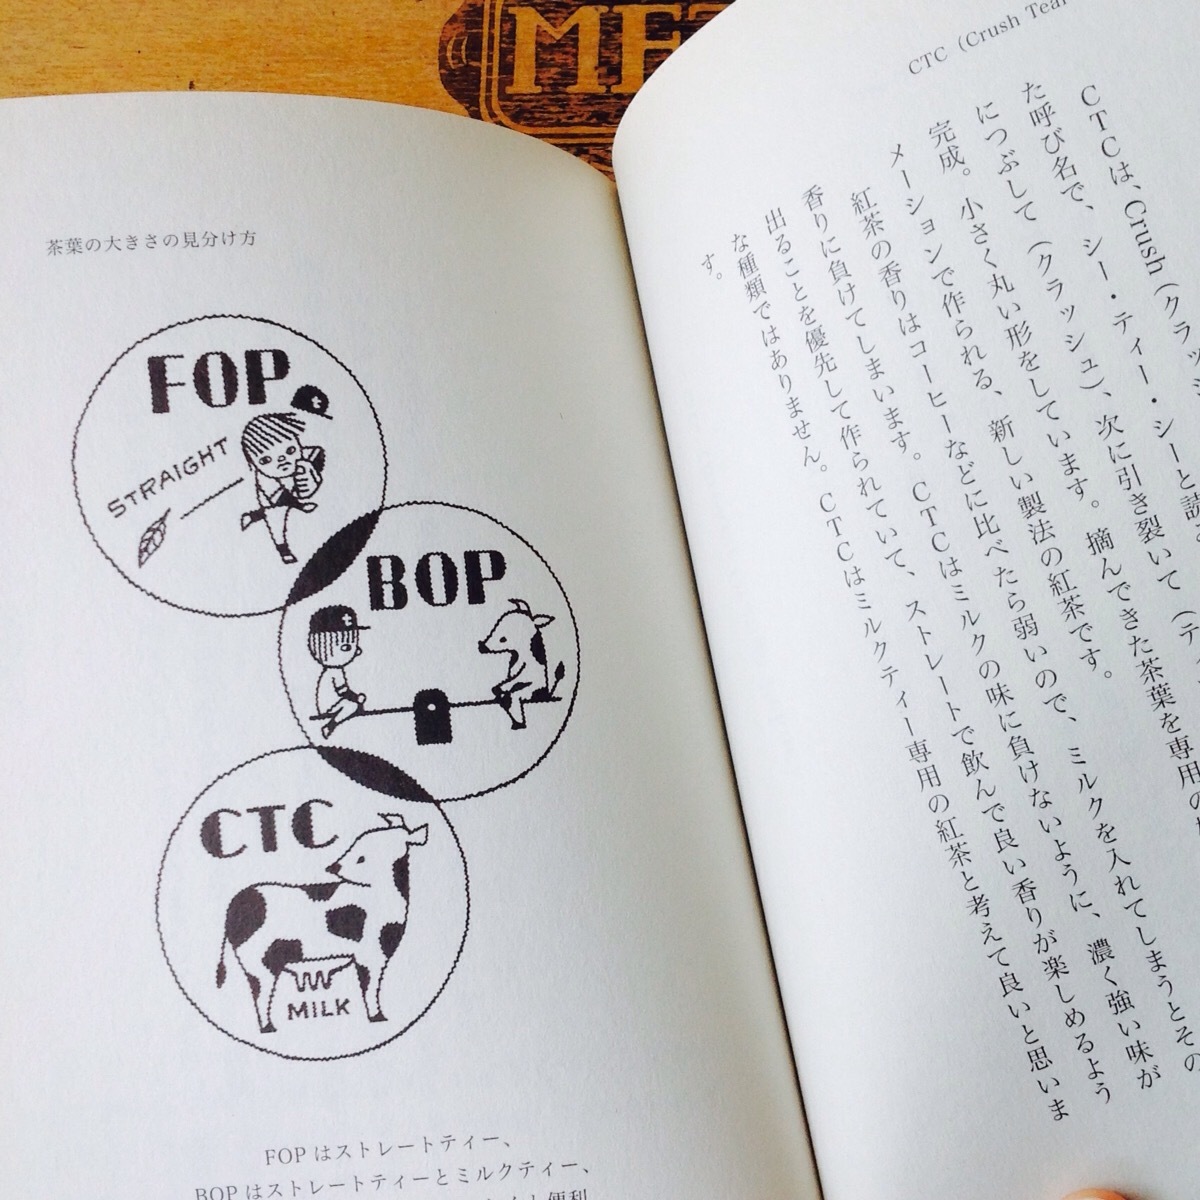 茶葉の大きさの見分け方
FOP
t
STRAIGHT
BOP
t
CTC
MILK
FOP はストレートティー、
BOP はストレートティーとミルクティー、
便利
CTC（Crush Tear
CTCは、Crush（クラッシ
た呼び名で、シー・ティー・シーと読
につぶして（クラッシュ）、次に引き裂いて（テ
完成。小さく丸い形をしています。摘んできた茶葉を専用の
メーションで作られる、新しい製法の紅茶です。
紅茶の香りはコーヒーなどに比べたら弱いので、ミルクを入れてしまうとその
香りに負けてしまいます。CTCはミルクの味に負けないように、濃く強い味が
出ることを優先して作られていて、ストレートで飲んで良い香りが楽しめるよう
な種類ではありません。CTCはミルクティー専用の紅茶と考えて良いと思いま
す。